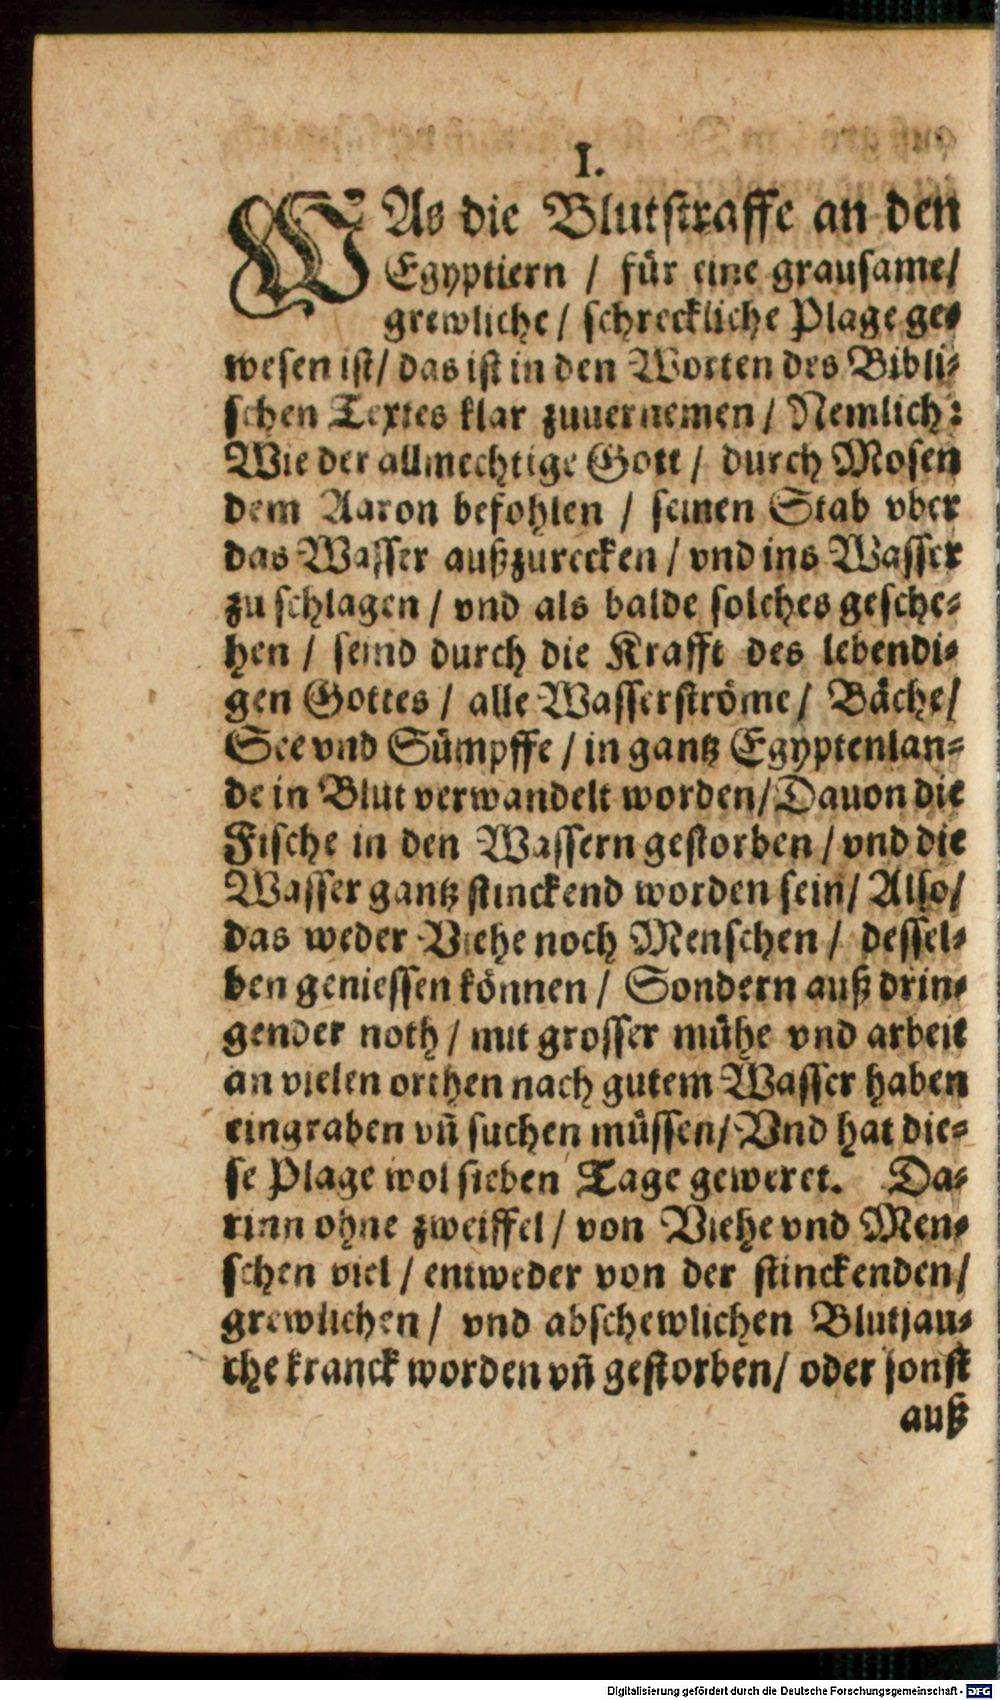 I.
WAs die Blutstraffe an den
Egyptiern / für eine grausame/
grewliche / schreckliche Plage ge-
wesen ist/ das ist in den Worten des Bibli-
schen Textes klar zuuernemen / Nemlich:
Wie der allmechtige Gott / durch Mosen
dem Aaron befohlen / seinen Stab vber
das Wasser außzurecken / vnd ins Wasser
zu schlagen / vnd als balde solches gesche-
hen / seind durch die Krafft des lebendi-
gen Gottes / alle Wasserströme / Bäche/
See vnd Sümpffe / in gantz Egyptenlan-
de in Blut verwandelt worden/ Dauon die
Fische in den Wassern gestorben / vnd die
Wasser gantz stinckend worden sein/ Also/
das weder Viehe noch Menschen / dessel-
ben geniessen können / Sondern auß drin-
gender noth / mit grosser mühe vnd arbeit
an vielen orthen nach gutem Wasser haben
eingraben vñ suchen müssen/ Vnd hat die-
se Plage wol sieben Tage geweret. Da-
rinn ohne zweiffel / von Viehe vnd Men-
schen viel / entweder von der stinckenden/
grewlichen / vnd abschewlichen Blutjau-
che kranck worden vñ gestorben/ oder sonst
auß
Digitalisierung gefördert durch die Deutsche Forschungsgemeinschaft - DFG